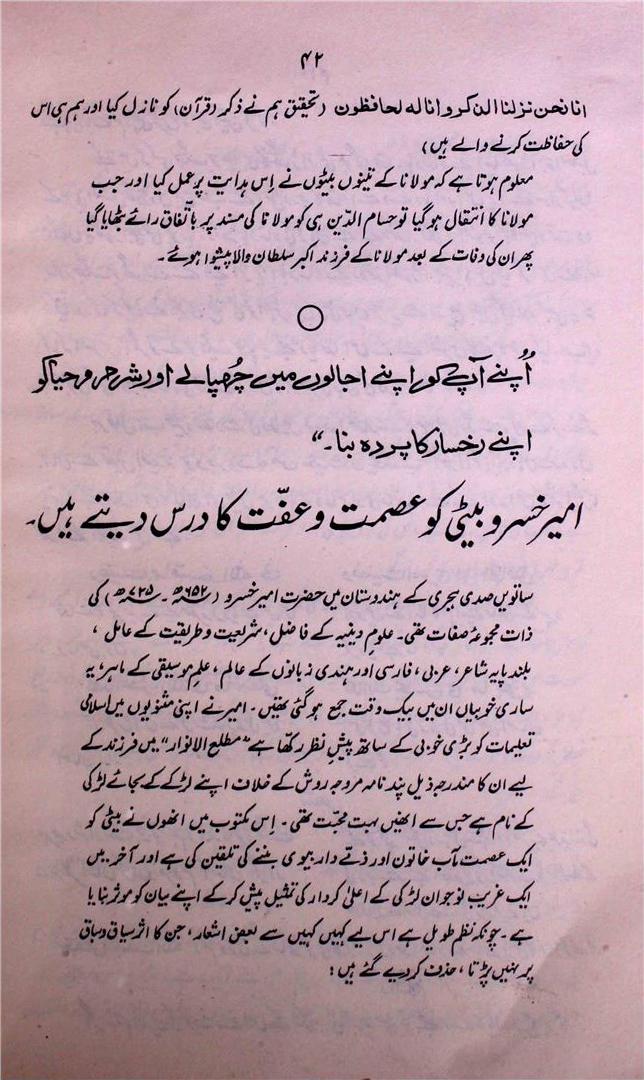 ۴۲
انا نحن نزلنا الذکر و انا له لحافظون (تحقیق ہم نے ذکر (قرآن) کو نازل کیا اور ہم ہی اس
کی حفاظت کرنے والے ہیں)
معلوم ہوتا ہے کہ مولانا کے تینوں بیٹوں نے اِس ہدایت پر عمل کیا اور جب
مولانا کا انتقال ہو گیا تو حسام الدّین ہی کو مولانا کی مسند پر باتّفاق رائے بٹھایا گیا
پھر ان کی وفات کے بعد مولانا کے فرزند اکبر سلطان والا پیشوا ہوئے۔
اُپنے آپ کو اپنے اجالوں میں چُھپالے اور شرم و حیا کو
اپنے رخسار کا پردہ بنا۔“
امیر خسرو بیٹی کو عصمت و عفّت کا درس دیتے ہیں۔
ساتویں صدی ہجری کے ہندوستان میں حضرت امیر خسرو (۶۵۲ھ۔ ۷۲۵ھ) کی
ذات مجموعۂ صفات تھی۔ علوم دینیہ کے فاضل، شریعت و طریقت کے عامل،
بلند پایہ شاعر، عربی، فارسی اور ہندی زبانوں کے عالم، علم موسیقی کے ماہر، یہ
ساری خوبیاں ان میں بیک وقت جمع ہو گئی تھیں۔ امیر نے اپنی مثنویوں میں اسلامی
تعلیمات کو بڑی خوبی کے ساتھ پیش نظر رکھا ہے ”مطلع الانوار“ میں فرزند کے
لیے ان کا مندرجہ ذیل پند نامہ مروجہ روش کے خلاف اپنے لڑکے کے بجائے لڑکی
کے نام ہے جس سے انھیں بہت محبّت تھی۔ اِس مکتوب میں انھوں نے بیٹی کو
ایک عصمت مآب خاتون اور ذمّے دار بیوی بننے کی تلقین کی ہے اور آخر میں
ایک غریب نوجوان لڑکی کے اعلیٰ کردار کی تمثیل پیش کرکے اپنے بیان کو موثر بنایا
ہے۔ چونکہ نظم طویل ہے اس لیے کہیں کہیں سے بعض اشعار، جن کا اثر سیاق و سباق
پر نہیں پڑتا، حذف کر دیے گئے ہیں: